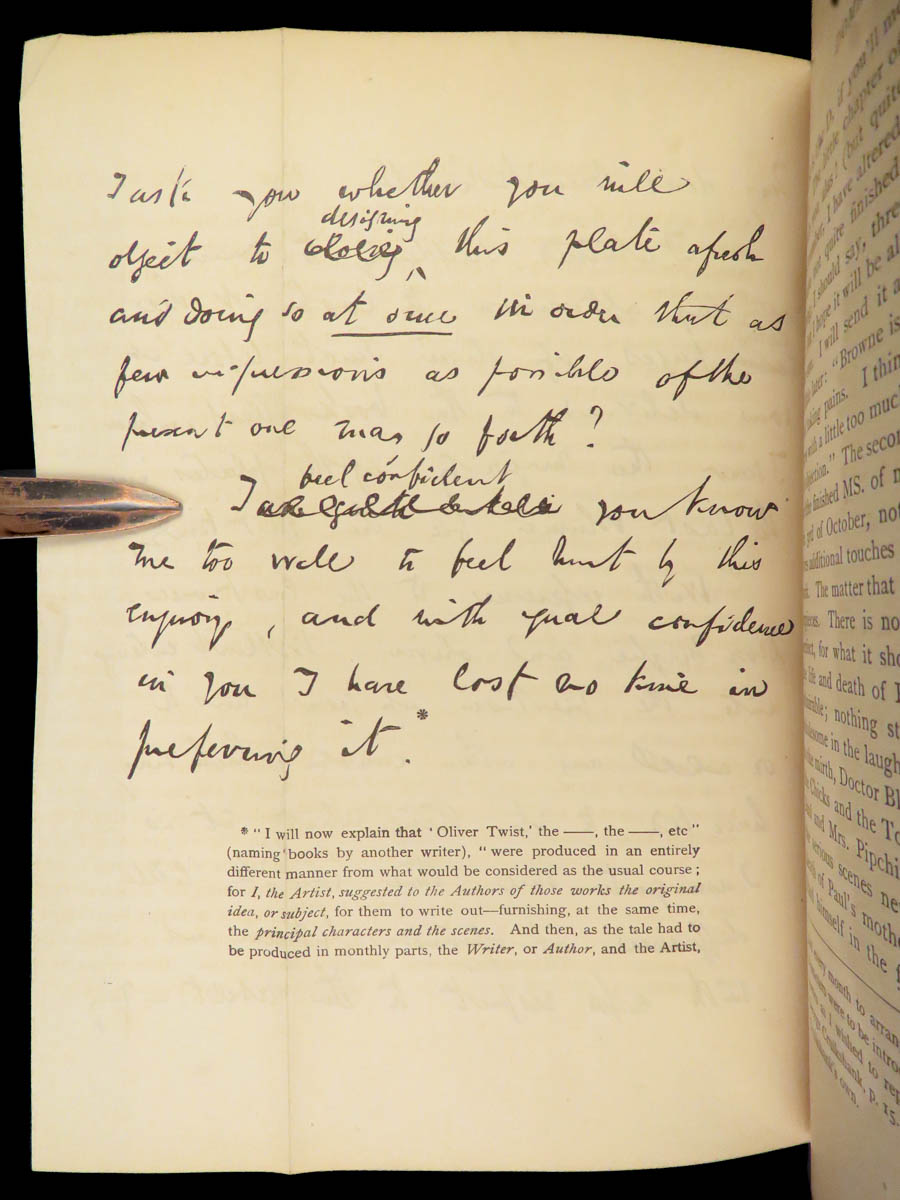 I ask you whether you will
designing
object to doing this plate afresh
and doing so at once in order that as
few impressions as possible of the
present one may go forth?
feel confident
I you know
me too well to feel hurt by this
enquiry, and with equal confidence
in you I have lost no time in
preferring it.*
* "I will now explain that 'Oliver Twist,' the ——, the ——, etc"
(naming books by another writer), "were produced in an entirely
different manner from what would be considered as the usual course;
for I, the Artist, suggested to the Authors of those works the original
idea, or subject, for them to write out—furnishing, at the same time,
the principal characters and the scenes. And then, as the tale had to
be produced in monthly parts, the Writer, or Author, and the Artist,
D. if you'll
little chapter of
alas! (but quite
I have altered
not quite finished
I should say, three
I hope it will be al
I will send it a
later: "Browne is
king pains. I thin
with a little too much
jection." The secon
the finished MS. of
of October, not
additional touches
The matter that
There is no
for what it sho
life and death of
mirable; nothing st
lesome in the laugh
the mirth, Doctor Bl
Chicks and the To
and Mrs. Pipchi
serious scenes ne
of Paul's moth
himself in the
every month to arran
were to be intro
as I wished to rep
Cruikshank, p. 15.
own.